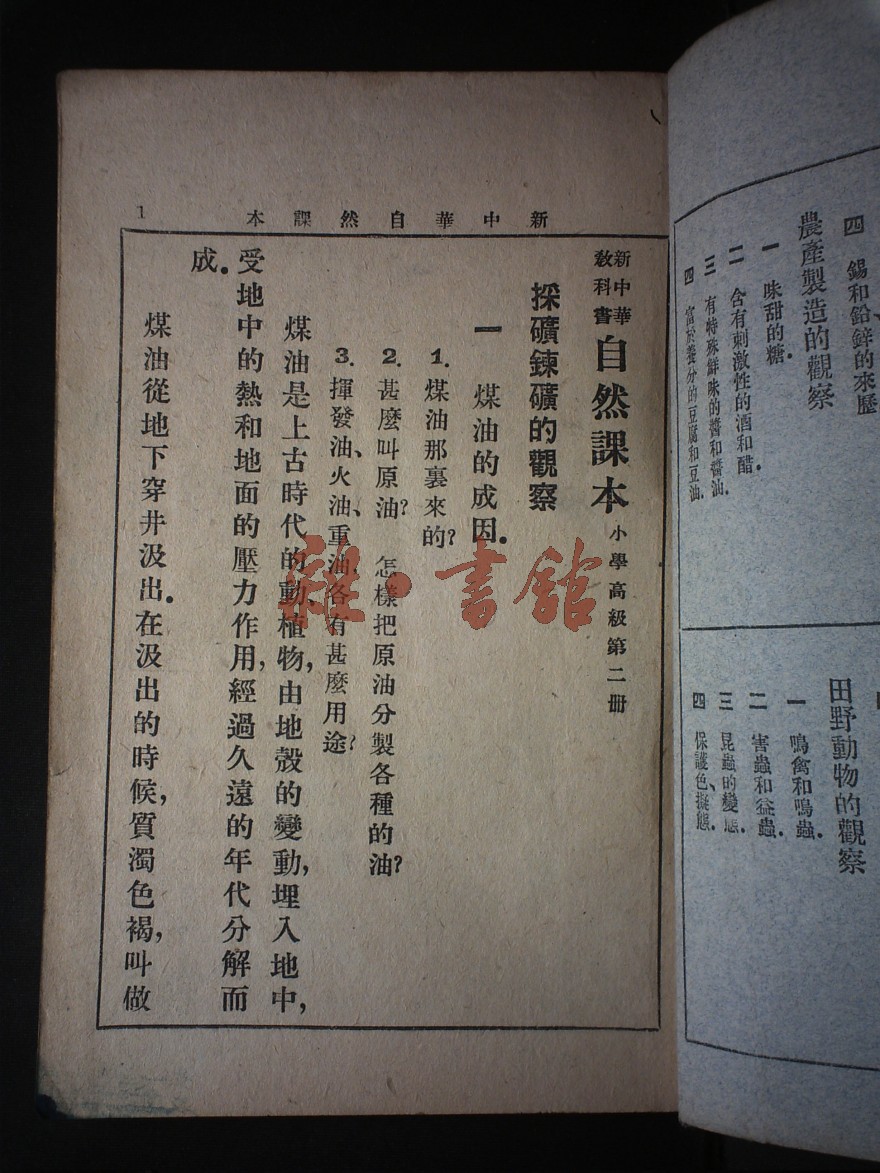 四　錫和鉛鋅的來歷
農產製造的觀察
一　味甜的糖.
二　含有刺激性的酒和醋.
三　有特殊鮮味的醬和醬油.
四　富於養分的豆腐和豆油.
田野動物的觀察
一　鳴禽和鳴蟲.
二　害蟲和益蟲.
三　昆蟲的變態.
四　保護色、擬態.
新中華自然課本
1
新中華教科書 自然課本 小學高級第二册
採礦鍊礦的觀察
一　煤油的成因.
1. 煤油那裏來的?
2. 甚麼叫原油?　怎樣把原油分製各種的油?
3. 揮發油、火油、重油,各有甚麼用途?
煤油是上古時代的動、植物,由地殼的變動,埋入地中,
受地中的熱和地面的壓力作用,經過久遠的年代分解而
成.
煤油從地下穿井汲出.在汲出的時候,質濁色褐,叫做
雜·書館